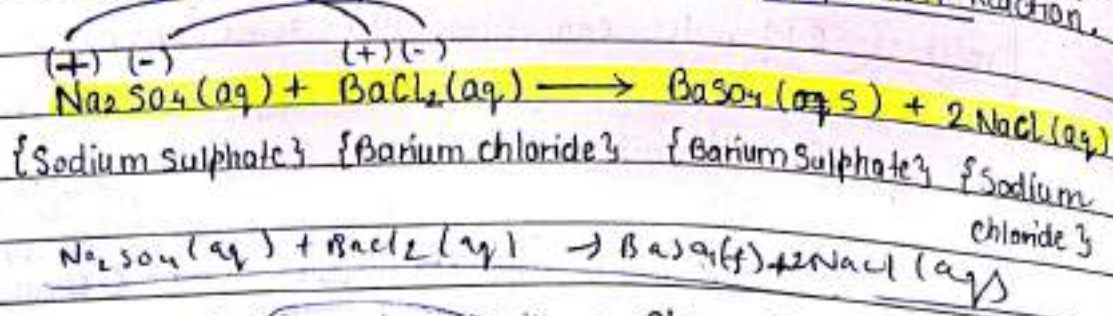 Reaction.
(+) (-) (+) (-)
Na2SO4 (aq) + BaCl2 (aq) ⟶ BaSO4 (s) + 2NaCl (aq)
{Sodium sulphate} {Barium chloride} {Barium Sulphate} {Sodium
chloride}
Na2SO4 (aq) + BaCl2 (aq) → BaSO4(s) + 2NaCl (aq)